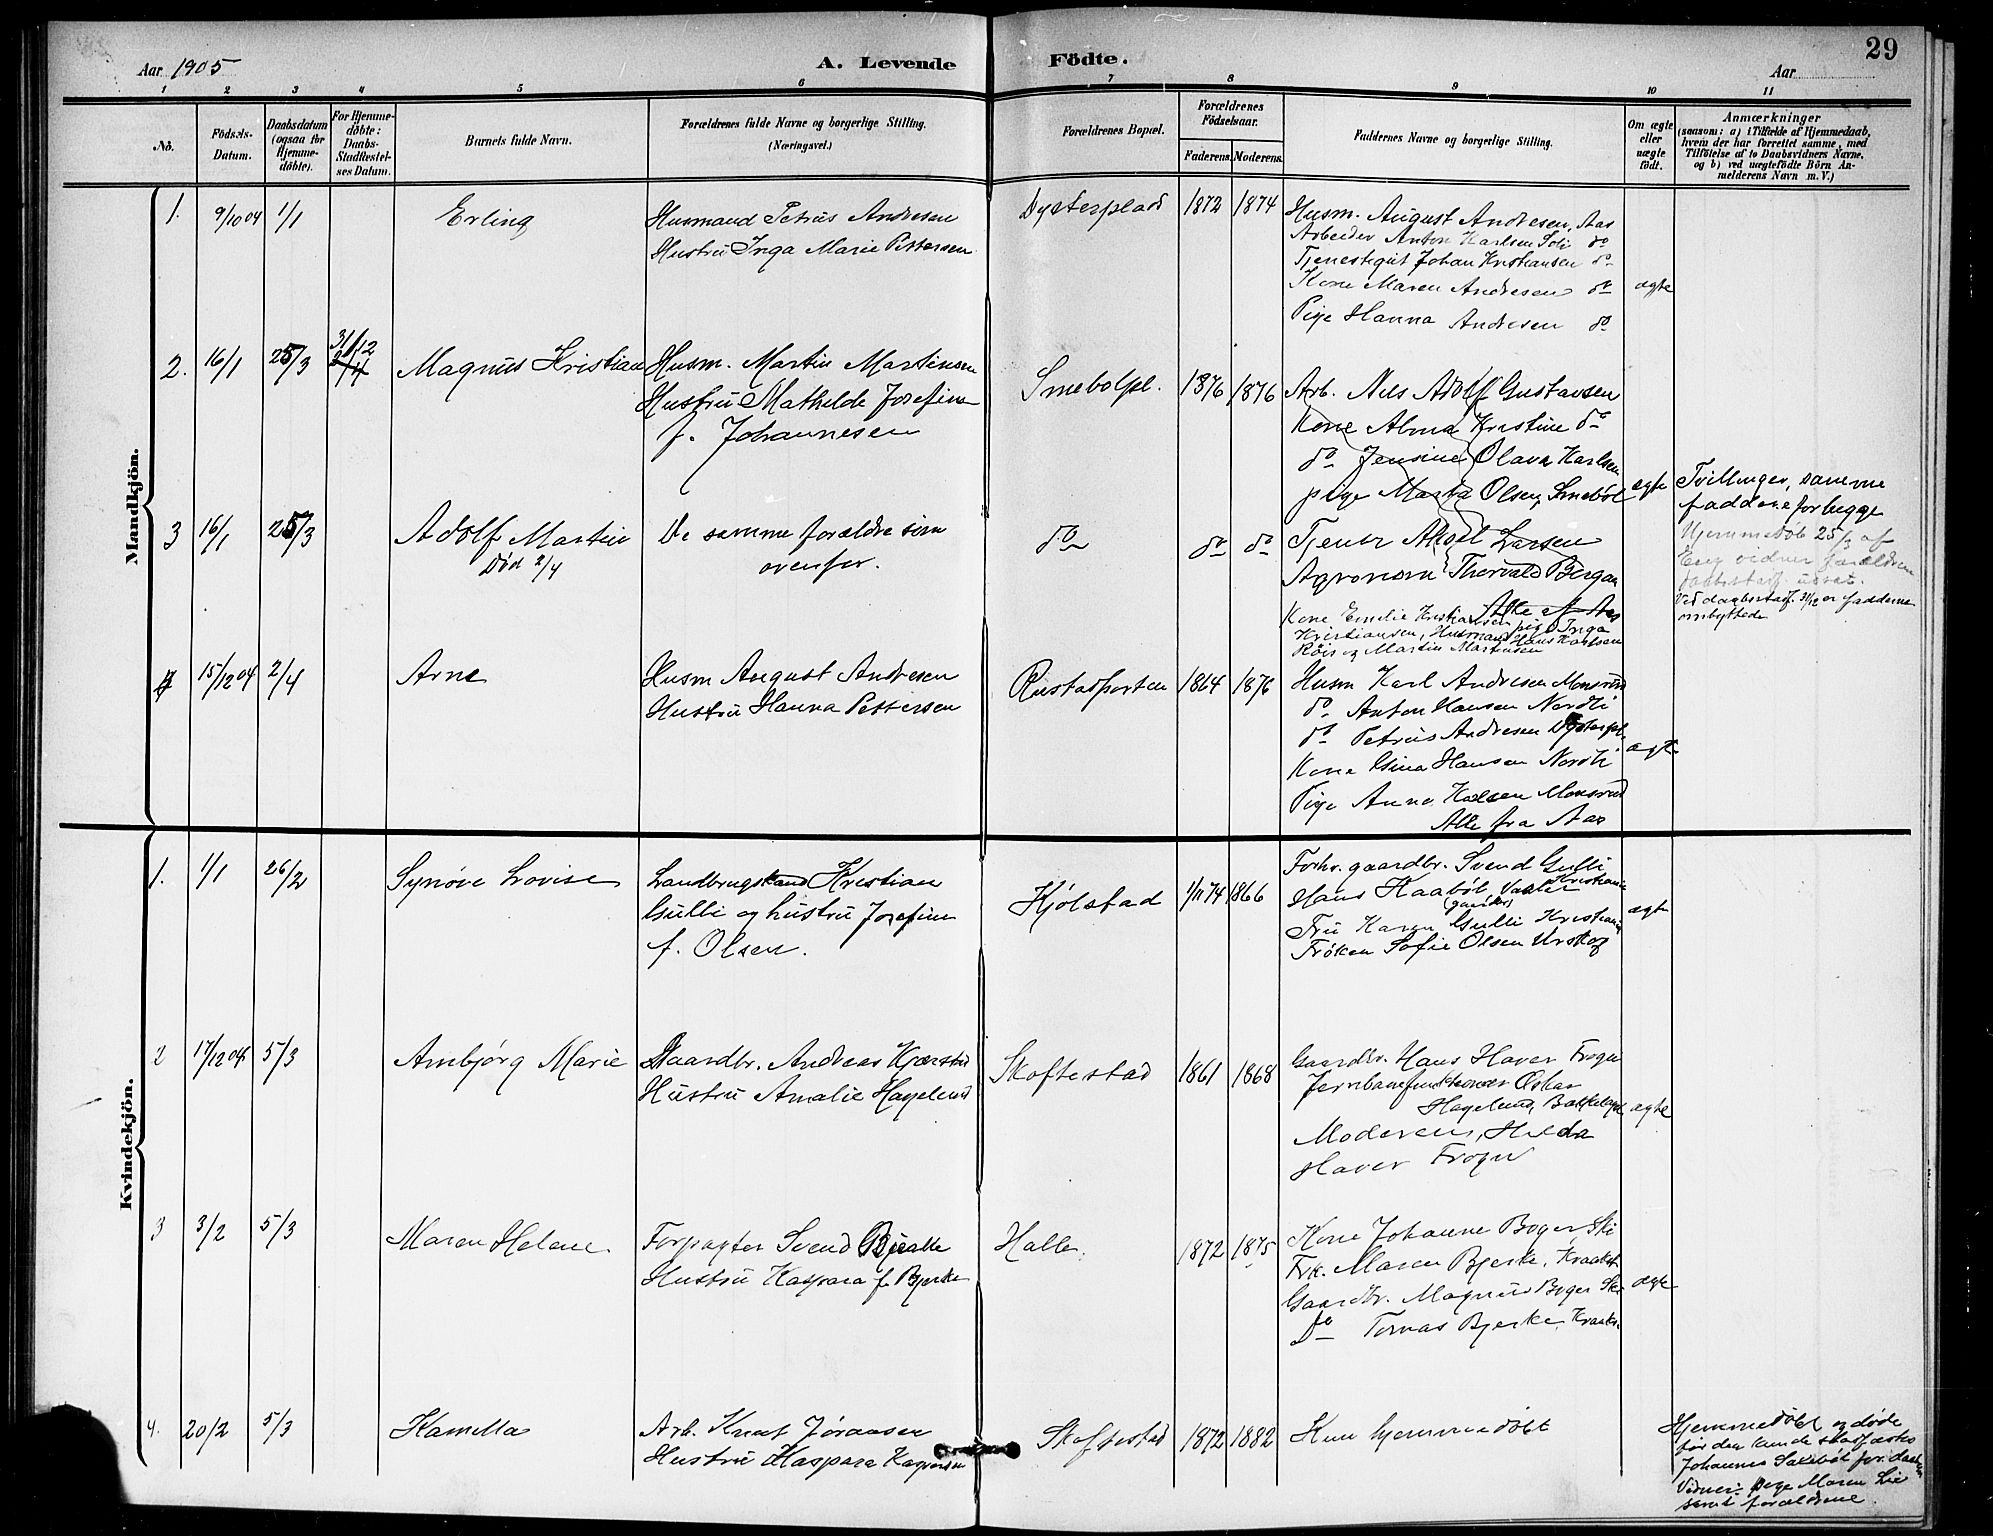 Aar 1905
A. Levende
Födte.
Aar
29
1 2 3 4 5 6 7 8 9 10 11
No.
Födsels-Datum.
Daabsdatum (ogsaa for Hjemmedöbte).
For Hjemmedöbte: Daabs-Stadfæstelses Datum.
Barnets fulde Navn.
Forældrenes fulde Navne og borgerlige Stilling.
(Næringsvei.)
Forældrenes Bopæl.
Forældrenes Födselsaar.
Faderens. Moderens.
Faddernes Navne og borgerlige Stilling.
Om ægte eller uægte födt.
Anmærkninger
(saasom: a) i Tilfælde af Hjemmedaab,
hvem der har forrettet samme, med
Tilföielse af to Daabsvidners Navne,
og b) ved uægtefödte Börn An-
melderens Navn m. V.)
Mandkjön.
1. 9/10 04 1/1 Erling
Husmand Petrus Andresen
Hustru Inga Marie Pettersen
Dysterplads 1872 1874
Husm. August Andresen, Aas
Arbeider Anton Karlsen Soli do
Tjenestegut Johan Kristiansen do
Kone Maren Andresen do
Pige Hanna Andresen do
ægte
2. 16/1 25/3 31/12 2/4 Magnus Kristian
Husm. Martin Martinsen
Hustru Mathilde Josefine
f. Johannesen
Smebølpl. 1876 1876
Arb. Nils Adolf Gustavsen
Kone Alma Kristine do
do Jensine Olava Karlsen
pige Marta Olsen, Smebøl
ægte
Tvillinger, samme
faddere for begge
3 16/1 25/3 Adolf Martin
Død 2/4
De samme forældre som
ovenfor.
do do do
Tjener Axel Larsen
Agronom Thorvald Bergan
Alle af Aas
Kone Emilie Kristiansen, pige Inga
Kristiansen, Husmand Hans Karlsen
Røis og Martin Martinsen
Hjemmedøb 25/3 af
vidner forældrene
Ved daabsstadf. 31/12 er fadderne
ombyttede
4 15/12 04 2/4 Arne
Husm August Andresen
Hustru Hanna Pettersen
Rustadporten 1864 1876
Husm Karl Andresen Monsrud
do Anton Hansen Nordli
do Petrus Andresen Dysterpl.
Kone Gina Hansen Nordli
Pige Anna Monsrud
Alle fra Aas
ægte
Kvindekjön.
1. 1/1 26/2 Synøve Lovise
Landbrugskand Kristian
Gulli og hustru Josefine
f. Olsen.
Kjølstad 1/11 74 1866
Forhv. gaardbr. Svend Gulli
Kristiania
Hans Kaabøl, Vaaler
(gaardbr)
Fru Karen Gulli Kristiania
Frøken Sofie Olsen Urskog
ægte
2 17/12 04 5/3 Arnbjørg Marie
Gaardbr. Andreas Kjærstad
Hustru Amalie Hagelund
Skoftestad 1861 1868
Gaardbr. Hans Haver Frogn
Jernbanefunktionær Oskar
Hagelund, Bækkelaget
Moderen, Hilda
Haver Frogn
ægte
3 3/2 5/3 Maren Helene
Forpagter Svend Bjealle
Hustru Kaspara f. Bjerke
Holle 1872 1875
Kone Johanne Boger, Ski
Frk. Maren Bjerke, Kraakst.
Gaardbr. Magnus Boger Ski
Do Tomas Bjerke, Kraakst.
ægte
4. 20/2 5/3 Kamilla
Arb. Knut Jøransen
Hustru Kaspara Kaspersen
Skoftestad 1872 1882
Kun hjemmedøbt
Hjemmedøbt og døde
før den kunde stadfæstes
Johannes Sakebøl for. daaben
Vidner: Pige Maren Lie
samt forældrene.